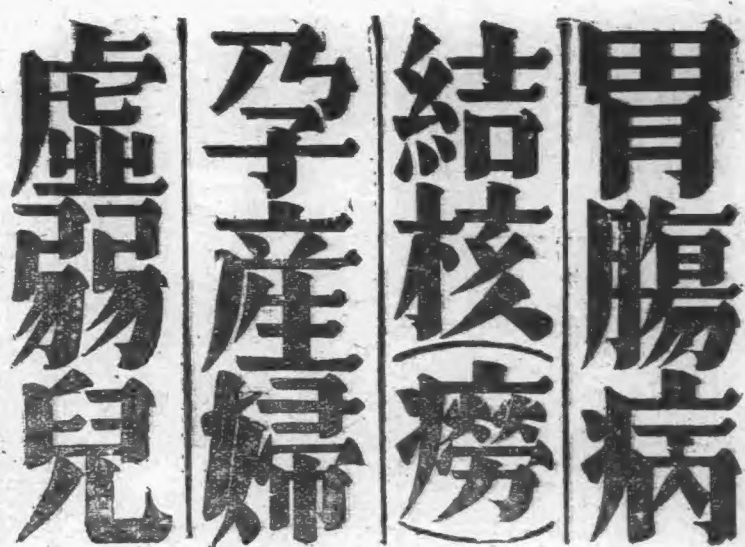 胃腸病
結核(癆)
孕産婦
虛弱兒